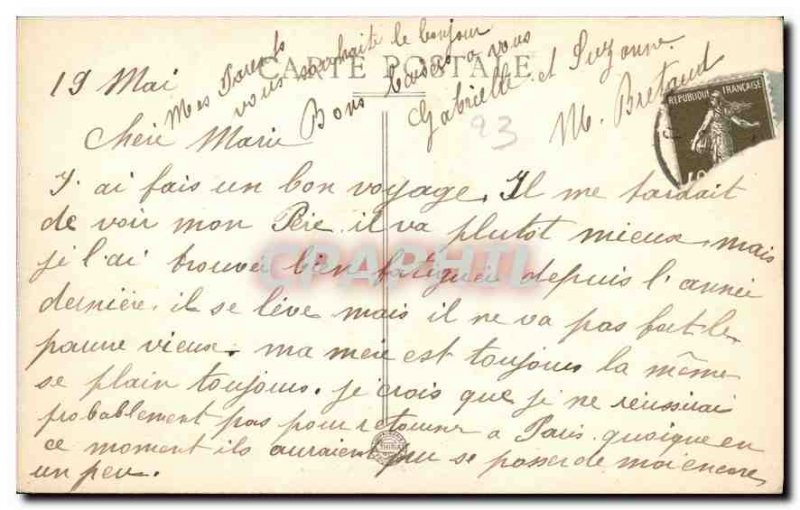 CARTE POSTALE
19 Mai
Mes Parents
vous souhaite le bonjour
Bons baisers a vous
Gabrielle et Suzanne.
M. Bretaud
93
REPUBLIQUE FRANÇAISE
Chère Marie
J'ai fais un bon voyage. Il me tardait
de voir mon Père il va plutot mieux, mais
je l'ai trouvé bien fatigué depuis l'année
dernière. il se lève mais il ne va pas fort le
pauvre vieux. ma mère est toujours la même
se plain toujours. je crois que je ne réussirai
probablement pas pour retourner a Paris quoique en
ce moment ils auraient pu se passer de moi encore
un peu.
CPAPHIL